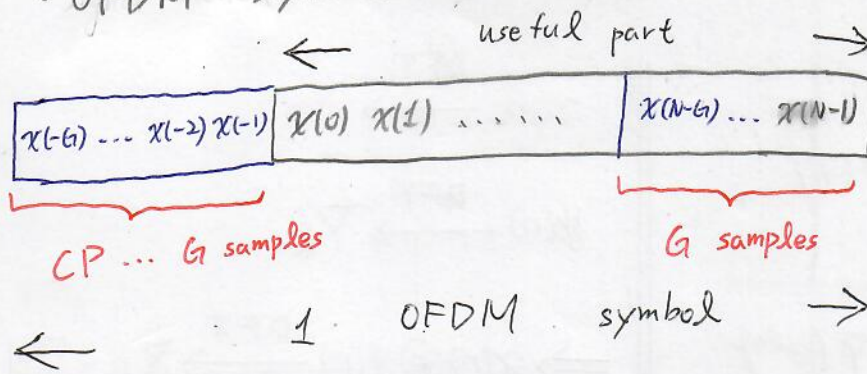 OFDM
useful part
x(-G) ... x(-2) x(-1) x(0) x(1) ...... x(N-G) ... x(N-1)
CP ... G samples
G samples
1 OFDM symbol